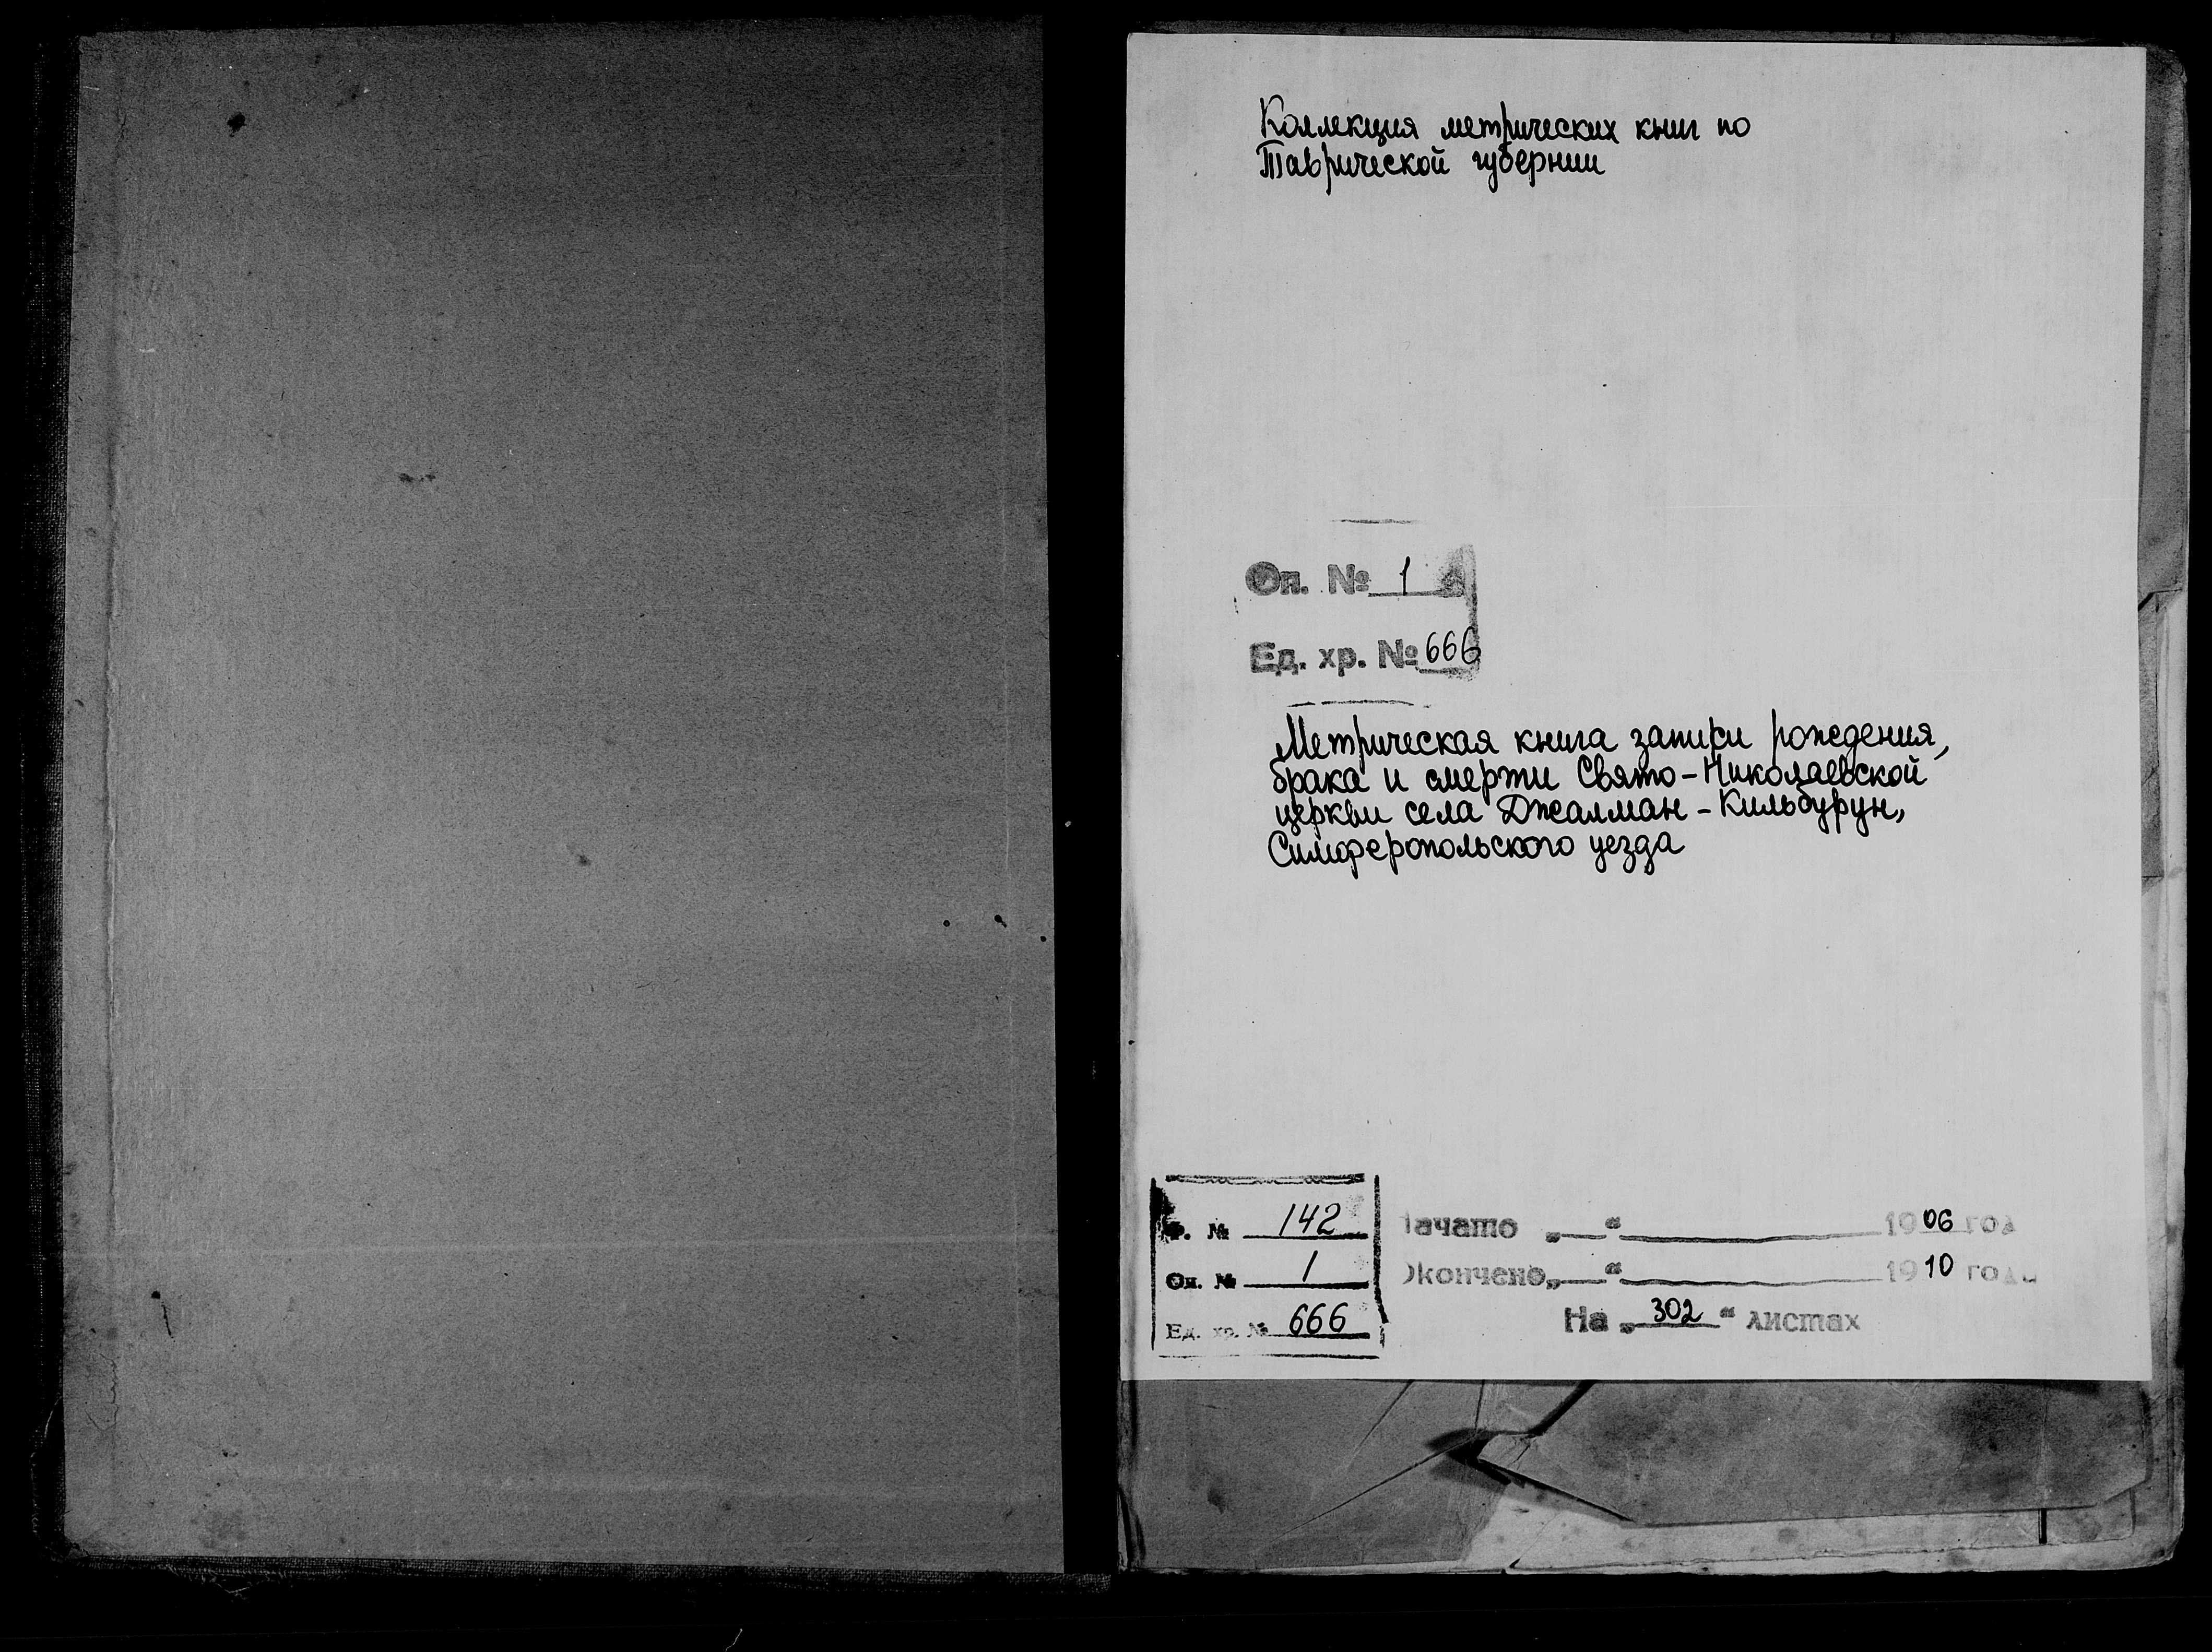 Коллекция метрических книг по
Таврической губернии
Оп. № 1
Ед. хр. № 666
Метрическая книга записи рождения,
брака и смерти Свято-Николаевской
церкви села Джалман-Кильбурун,
Симферопольского уезда
Ф. № 142
Оп. № 1
Ед. хр. № 666
Начато „ “ 1906 год
Окончено „ “ 1910 года
На „302“ листах